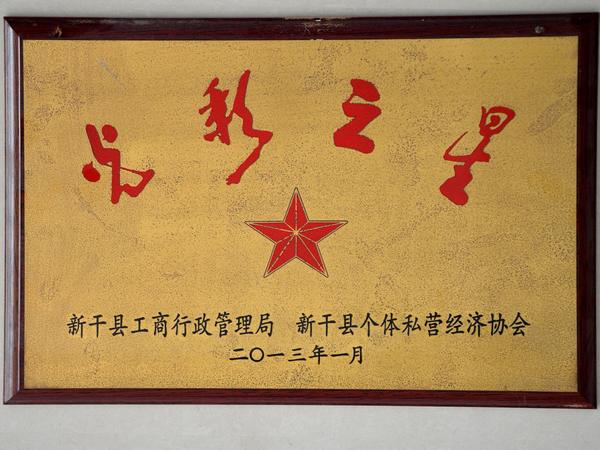 光彩之星
新干县工商行政管理局 新干县个体私营经济协会
二〇一三年一月